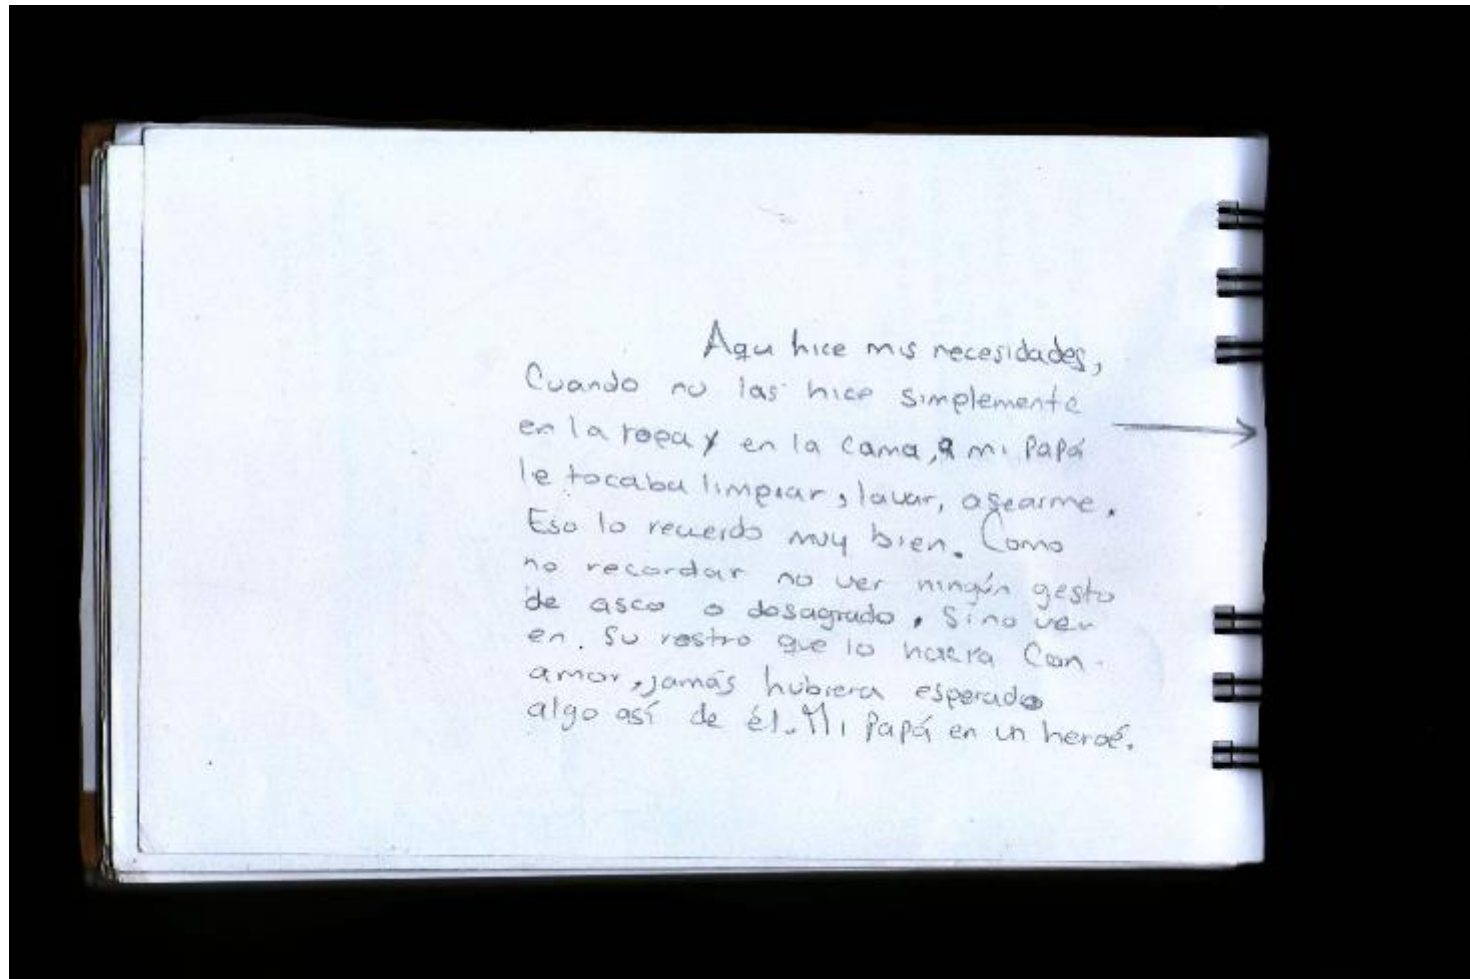 Aqu hice mis necesidades,
Cuando no las hice simplemente
en la ropa y en la cama, a mi Papá
le tocaba limpiar, lavar, asearme.
Eso lo recuerdo muy bien. Como
no recordar no ver ningún gesto
de asco o desagrado, Sino ver
en. Su rostro que lo hacía Con
amor, jamás hubiera esperado
algo así de él. Mi Papá en un heroé.